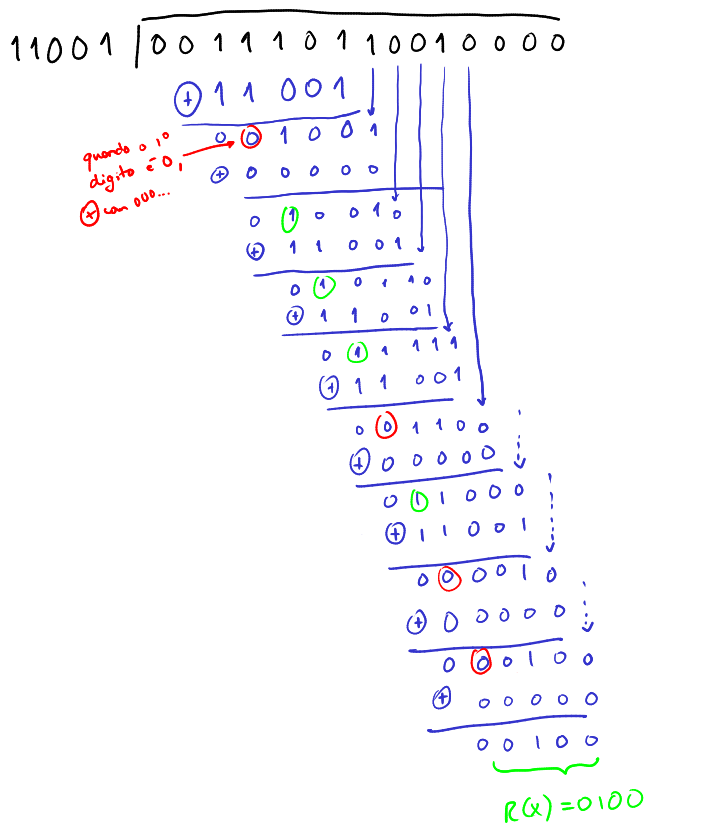 11001 | 0 0 1 1 1 0 1 1 0 0 1 0 0 0 0
+ 1 1 0 0 1
0 0 1 0 0 1
quando o 1º
digito é 0,
+ com 000...
+ 0 0 0 0 0
0 1 0 0 1 0
+ 1 1 0 0 1
0 1 0 1 1 0
+ 1 1 0 0 1
0 1 1 1 1 1
+ 1 1 0 0 1
0 0 1 1 0 0
+ 0 0 0 0 0
0 1 1 0 0 0
+ 1 1 0 0 1
0 0 0 0 1 0
+ 0 0 0 0 0
0 0 0 1 0 0
+ 0 0 0 0 0
0 0 1 0 0
R(x) = 0100